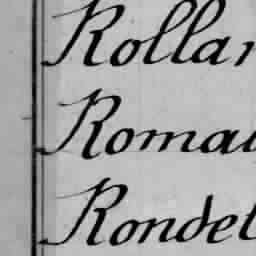 Rollar
Romai
Rondel